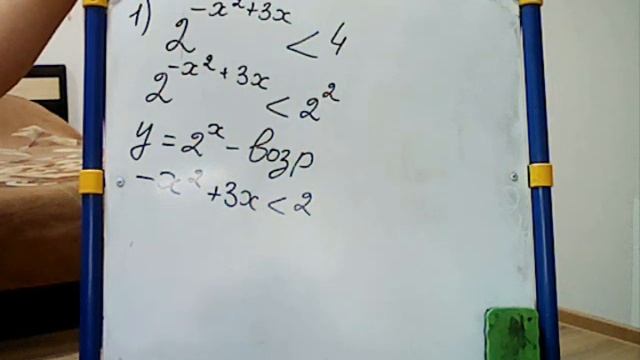 1) 2^{-x²+3x} < 4
2^{-x²+3x} < 2²
y = 2ˣ - возр
-x² + 3x < 2